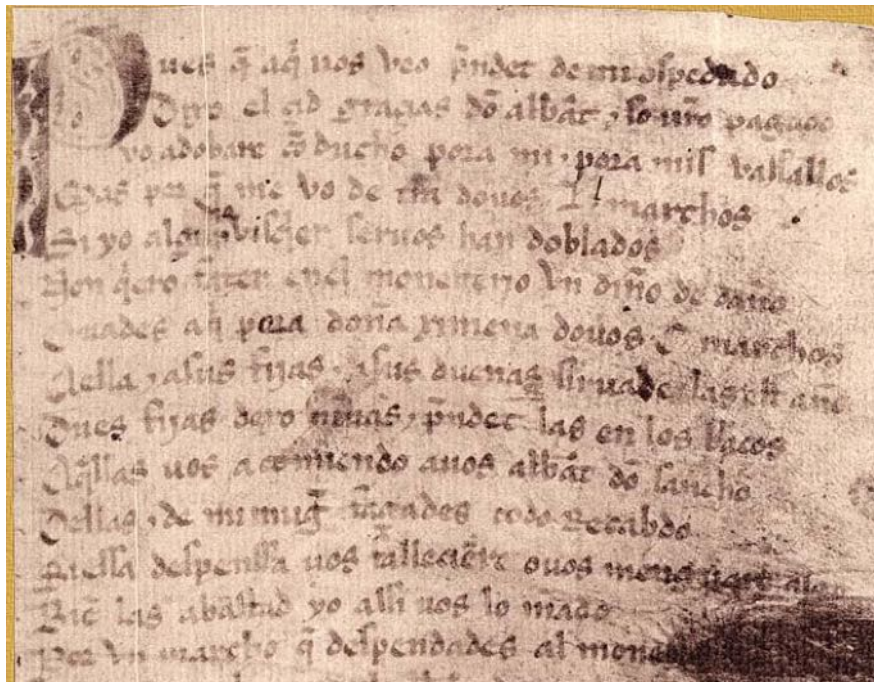 Pues q̃ aq̃ uos veo p̃ndet de mi ospedado
Dixo el çid graçias dõ abbat ⁊ so ur̃o pagado
yo adobare cõ ducho pora mi ⁊ pora mis vassallos
Mas por q̃ me vo de tr̃ra douos L marchos
Si yo algũ visq̃er seruos han doblados
Non q̃ero fazer enel monesterio vn din̄o de daño
Euades aq̃ pora doña ximena douos C marchos
Aella ⁊ asus fijas ⁊ asus duenas siruades las est año
Dues fijas dexo nin̄as ⁊ p̃ndet las en los braços
Aq̃llas uos acomiendo auos abbat dõ sancho
Dellas ⁊ de mi mugr̃ fagades todo Recabdo
Si essa despenssa uos falleçiere ouos menguare algo
Biẽ las abastad yo assi uos lo mãdo
Por vn marcho q̃ despendades al